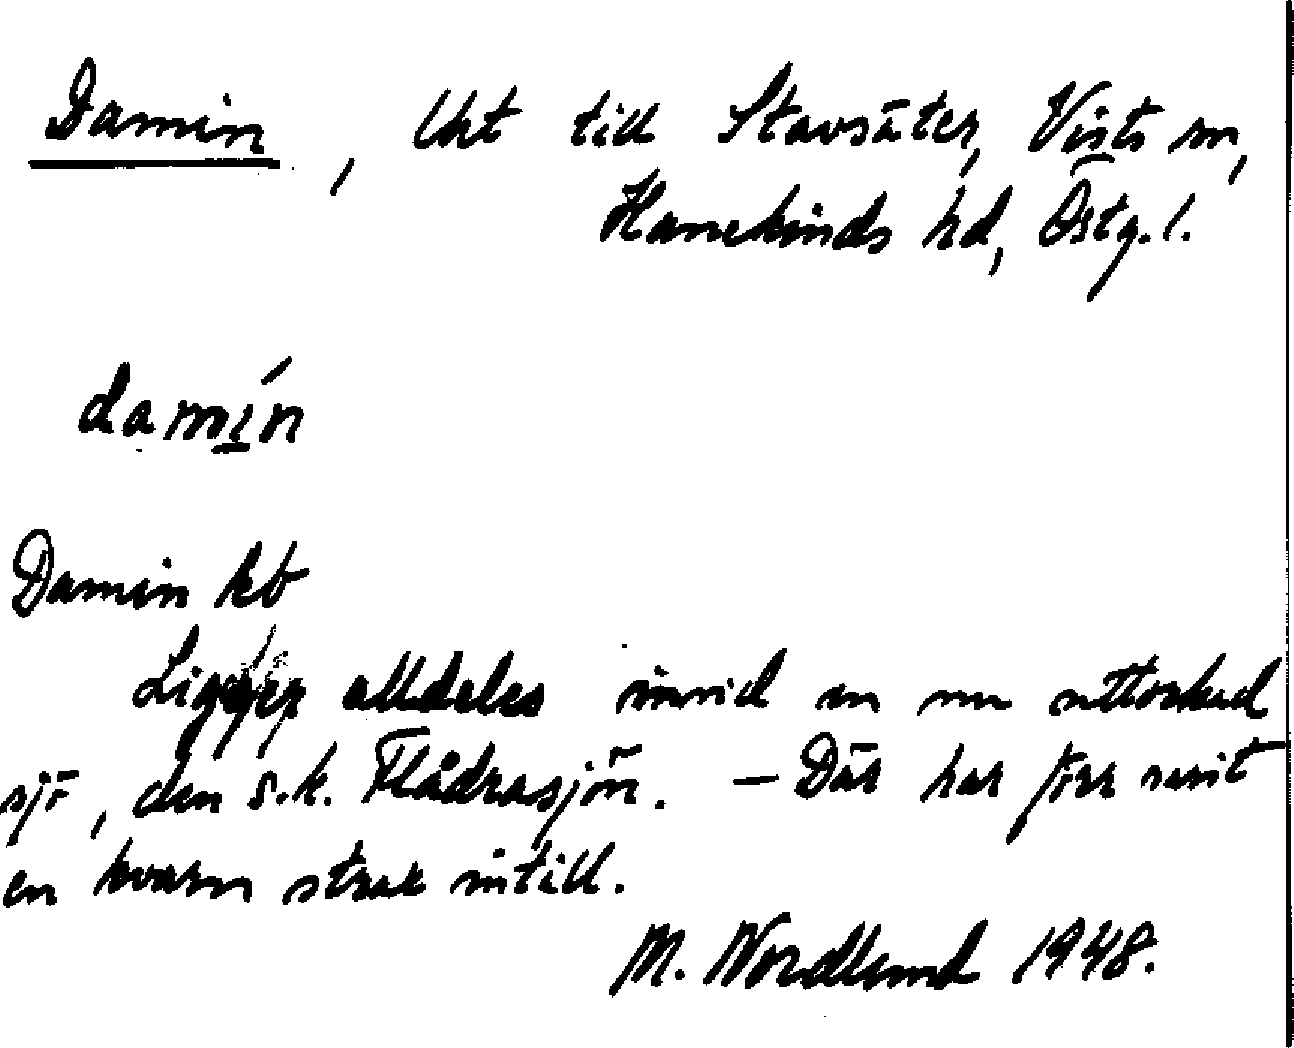 Damin, Uht till Stavsäter, Vists sn,
Hanekinds hd, Östg. l.
damín
Damin kb
Ligger alldeles invid en nu uttorkad
sjö, den s.k. Flådrasjön. – Där har förr varit
en kvarn strax intill.
M. Nordlund 1948.